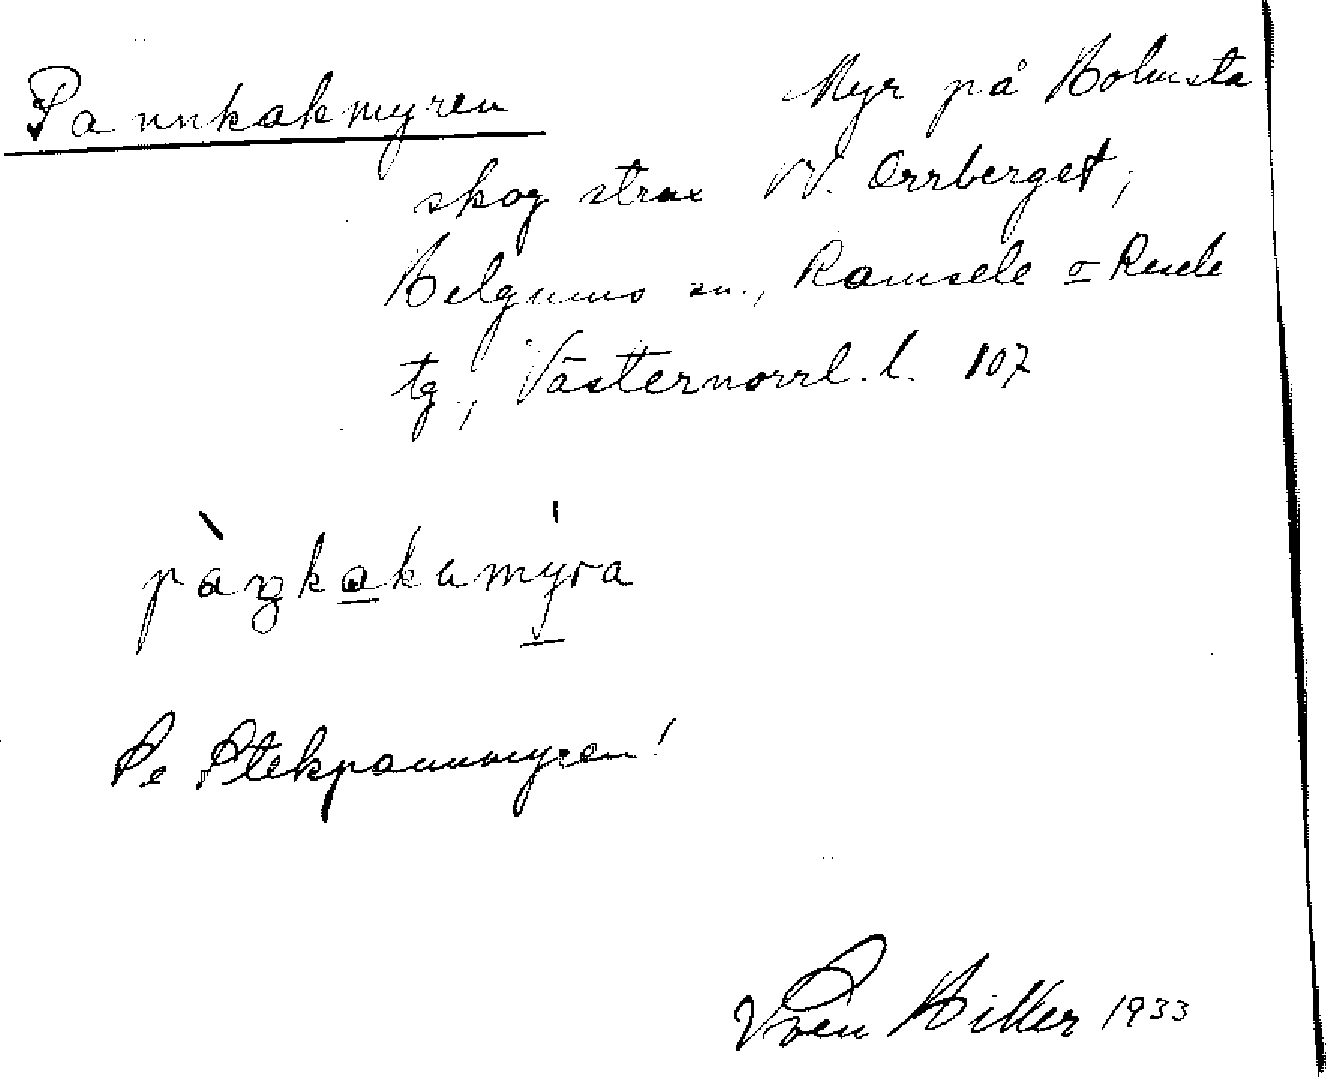 Pannkakmyren Myr på Holmsta
skog strax V. Orrberget,
Helgums sn., Ramsele o Resele
tg., Västernorrl. l. 107
pàŋkakamyra
Se Stekpannmyren!
Sven Hiller 1933